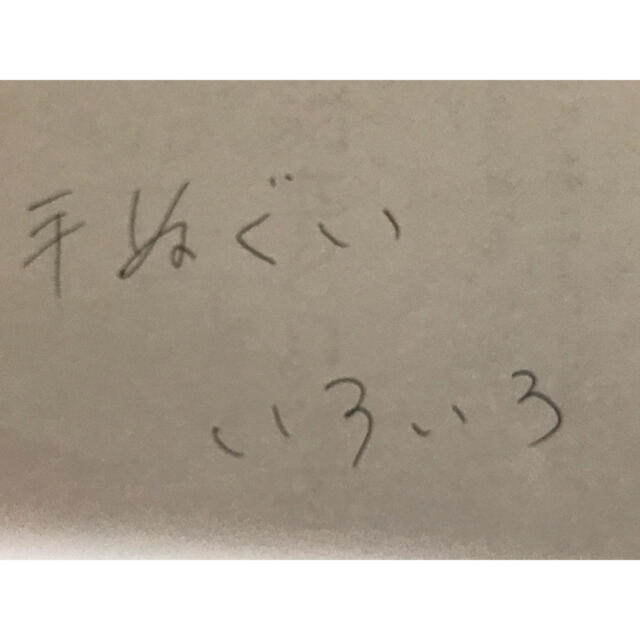 手ぬぐい
いろいろ